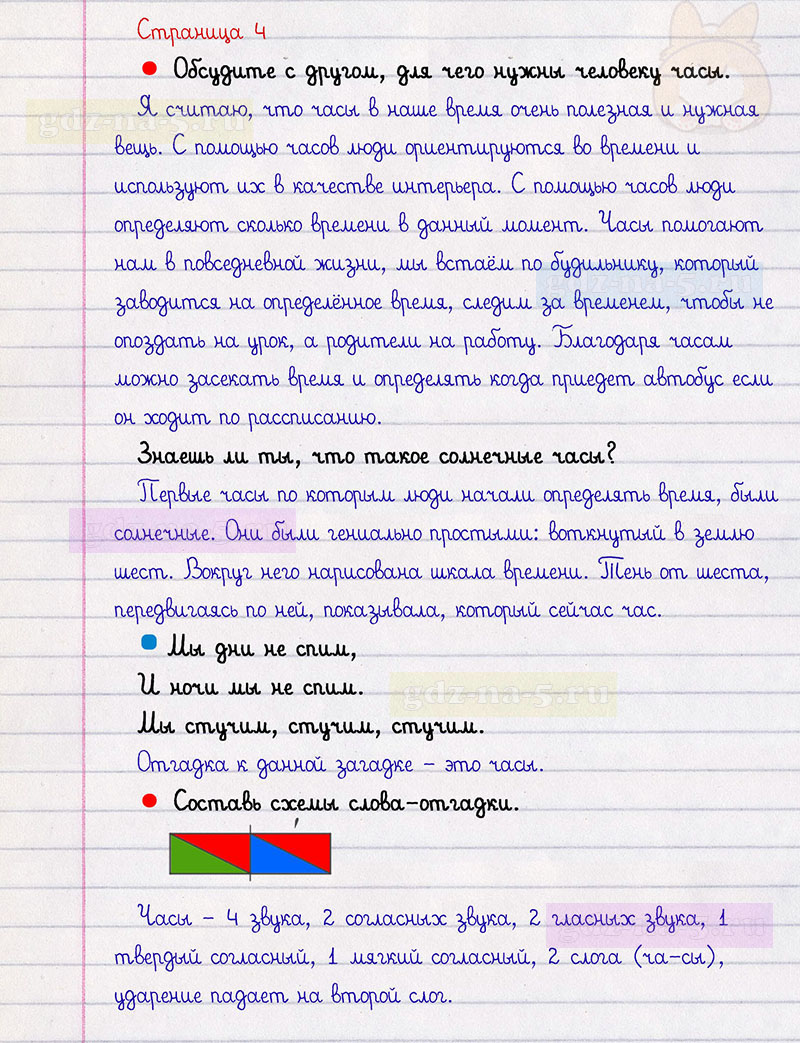 Страница 4
Обсудите с другом, для чего нужны человеку часы.
Я считаю, что часы в наше время очень полезная и нужная
вещь. С помощью часов люди ориентируются во времени и
используют их в качестве интерьера. С помощью часов люди
определяют сколько времени в данный момент. Часы помогают
нам в повседневной жизни, мы встаём по будильнику, который
заводится на определённое время, следим за временем, чтобы не
опоздать на урок, а родители на работу. Благодаря часам
можно засекать время и определять когда приедет автобус если
он ходит по рассписанию.
Знаешь ли ты, что такое солнечные часы?
Первые часы по которым люди начали определять время, были
солнечные. Они были гениально простыми: воткнутый в землю
шест. Вокруг него нарисована шкала времени. Тень от шеста,
передвигаясь по ней, показывала, который сейчас час.
Мы дни не спим,
И ночи мы не спим.
gdz-na-5.ru
Мы стучим, стучим, стучим.
Отгадка к данной загадке – это часы.
Составь схемы слова-отгадки.
Часы – 4 звука, 2 согласных звука, 2 гласных звука, 1
твердый согласный, 1 мягкий согласный, 2 слога (ча-сы),
ударение падает на второй слог.